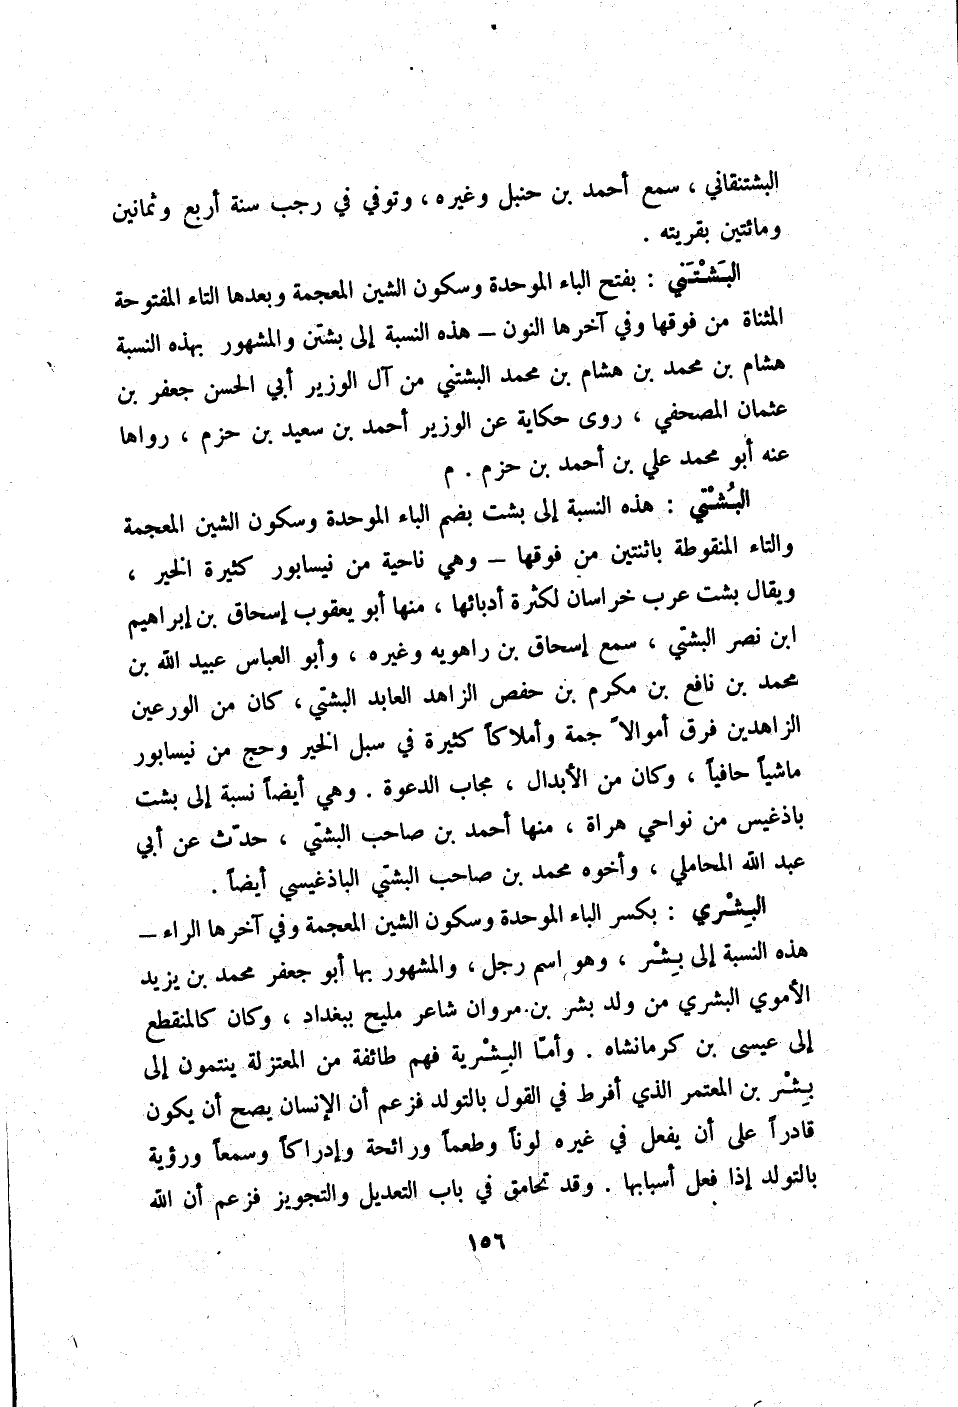 البشتنقاني ، سمع أحمد بن حنبل وغيره ، وتوفي في رجب سنة أربع وثمانين
ومائتين بقريته .
البَشْتَني : بفتح الباء الموحدة وسكون الشين المعجمة وبعدها التاء المفتوحة
المثناة من فوقها وفي آخرها النون – هذه النسبة إلى بشتن والمشهور بهذه النسبة
هشام بن محمد بن هشام بن محمد البشتني من آل الوزير أبي الحسن جعفر بن
عثمان المصحفي ، روى حكاية عن الوزير أحمد بن سعيد بن حزم ، رواها
عنه أبو محمد علي بن أحمد بن حزم . م
البُشْتي : هذه النسبة إلى بشت بضم الباء الموحدة وسكون الشين المعجمة
والتاء المنقوطة باثنتين من فوقها – وهي ناحية من نيسابور كثيرة الخير ،
ويقال بشت عرب خراسان لكثرة أدبائها ، منها أبو يعقوب إسحاق بن إبراهيم
ابن نصر البشتي ، سمع إسحاق بن راهويه وغيره ، وأبو العباس عبيد الله بن
محمد بن نافع بن مكرم بن حفص الزاهد العابد البشتي ، كان من الورعين
الزاهدين فرق أموالاً جمة وأملاكاً كثيرة في سبل الخير وحج من نيسابور
ماشياً حافياً ، وكان من الأبدال ، مجاب الدعوة . وهي أيضاً نسبة إلى بشت
باذغيس من نواحي هراة ، منها أحمد بن صاحب البشتي ، حدّث عن أبي
عبد الله المحاملي ، وأخوه محمد بن صاحب البشتي الباذغيسي أيضاً .
البِشْري : بكسر الباء الموحدة وسكون الشين المعجمة وفي آخرها الراء –
هذه النسبة إلى بِشْر ، وهو اسم رجل ، والمشهور بها أبو جعفر محمد بن يزيد
الأموي البشري من ولد بشر بن مروان شاعر مليح ببغداد ، وكان كالمنقطع
إلى عيسى بن كرمانشاه . وأمّا البِشْرية فهم طائفة من المعتزلة ينتمون إلى
بِشْر بن المعتمر الذي أفرط في القول بالتولد فزعم أن الإنسان يصح أن يكون
قادراً على أن يفعل في غيره لوناً وطعماً ورائحة وإدراكاً وسمعاً ورؤية
بالتولد إذا فعل أسبابها . وقد تحامق في باب التعديل والتجويز فزعم أن الله
١٥٦